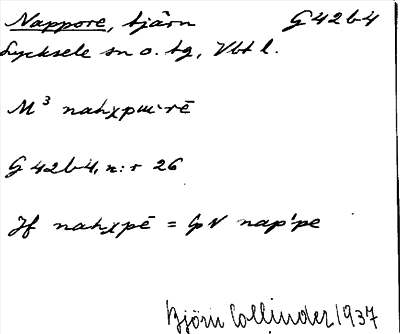 Nappore, tjärn G42b4
Lycksele sn o. tg, Vbt l.
M³ nahχpɯ·rē
G42b4, n:r 26
Jf nahχpē = LpN nap'pe
Björn Collinder 1937